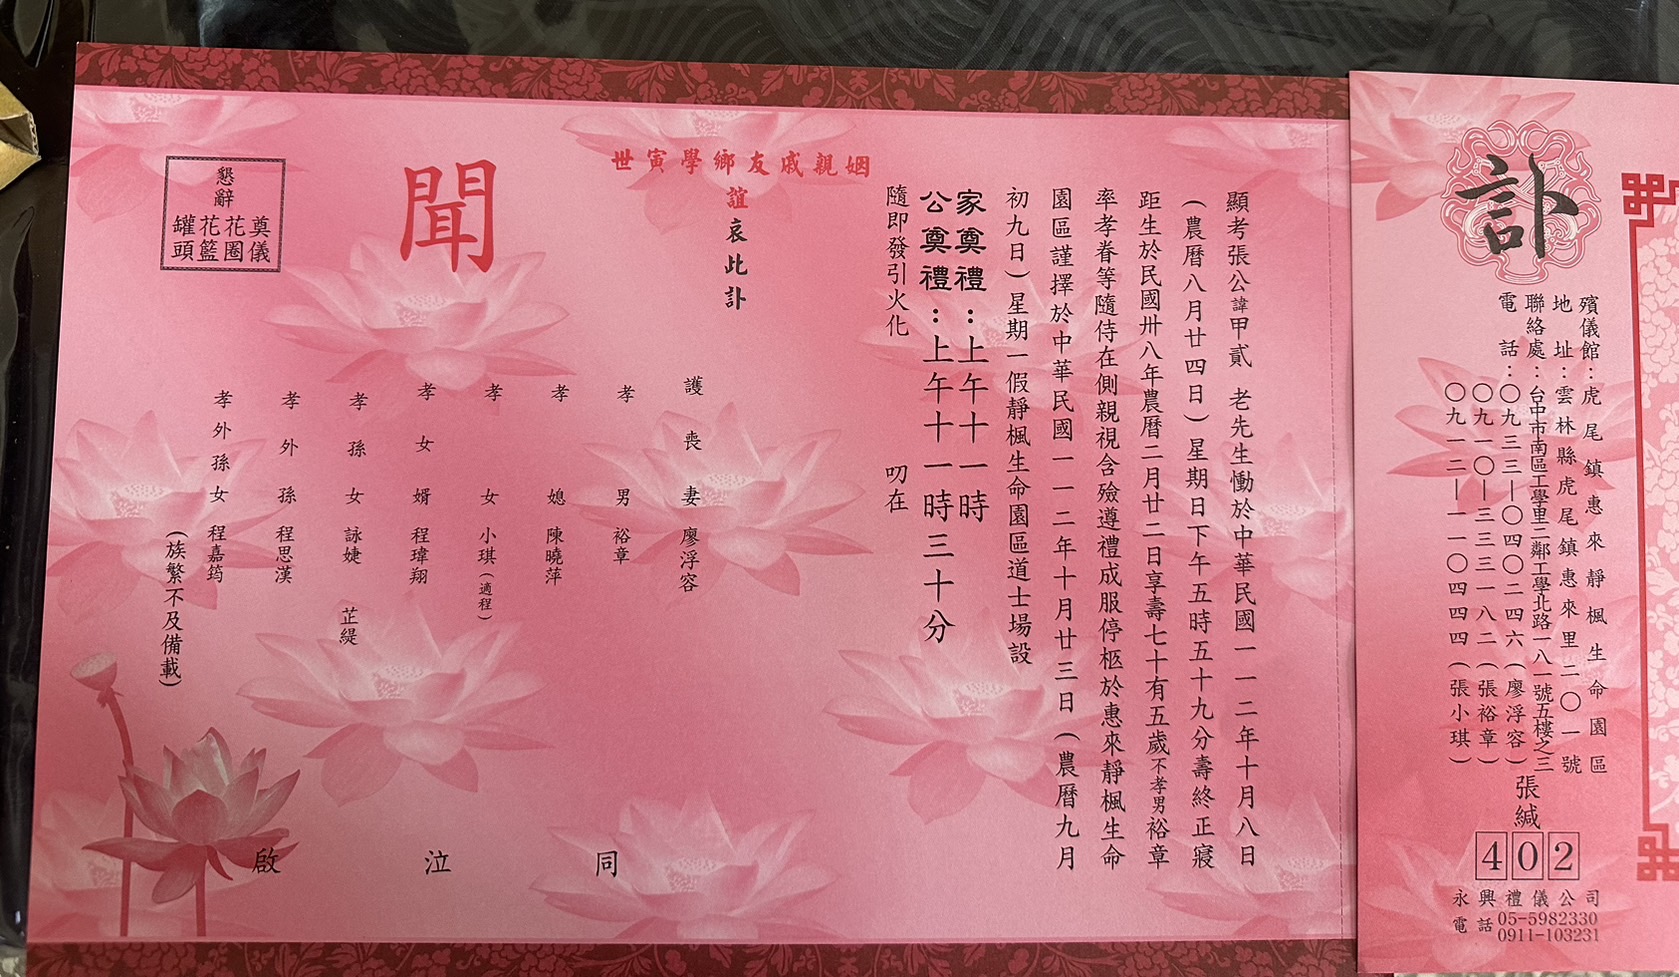 訃
殯儀館：虎尾鎮惠來靜楓生命園區
地址：雲林縣虎尾鎮惠來里二〇一號
聯絡處：台中市南區工學里二鄰工學北路一八一號五樓之三
電話：〇九三三－〇四〇二四六（廖浮容）
〇九一〇－三三三一八二（張裕章）
〇九一二－一一〇四四四（張小琪）
張緘
402
永興禮儀公司
電話 05-5982330
0911-103231
顯考張公諱甲貳 老先生慟於中華民國一一二年十月八日
（農曆八月廿四日）星期日下午五時五十九分壽終正寢
距生於民國卅八年農曆二月廿二日享壽七十有五歲不孝男裕章
率孝眷等隨侍在側親視含殮遵禮成服停柩於惠來靜楓生命
園區謹擇於中華民國一一二年十月廿三日（農曆九月
初九日）星期一假靜楓生命園區道士場設
家奠禮：上午十一時
公奠禮：上午十一時三十分
隨即發引火化 叨在
姻親戚友鄉學寅世
誼哀此訃
聞
護喪妻 廖浮容
孝男 裕章
孝媳 陳曉萍
孝女 小琪（適程）
孝女婿 程瑋翔
孝孫女 詠婕 芷緹
孝外孫 程思漢
孝外孫女 程嘉筠
（族繁不及備載）
同泣啟
懇辭
奠儀
花圈
花籃
罐頭